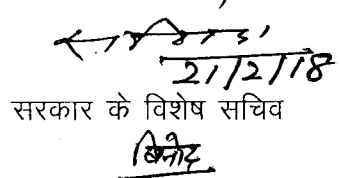 21/2/18
सरकार के विशेष सचिव
बिनोद